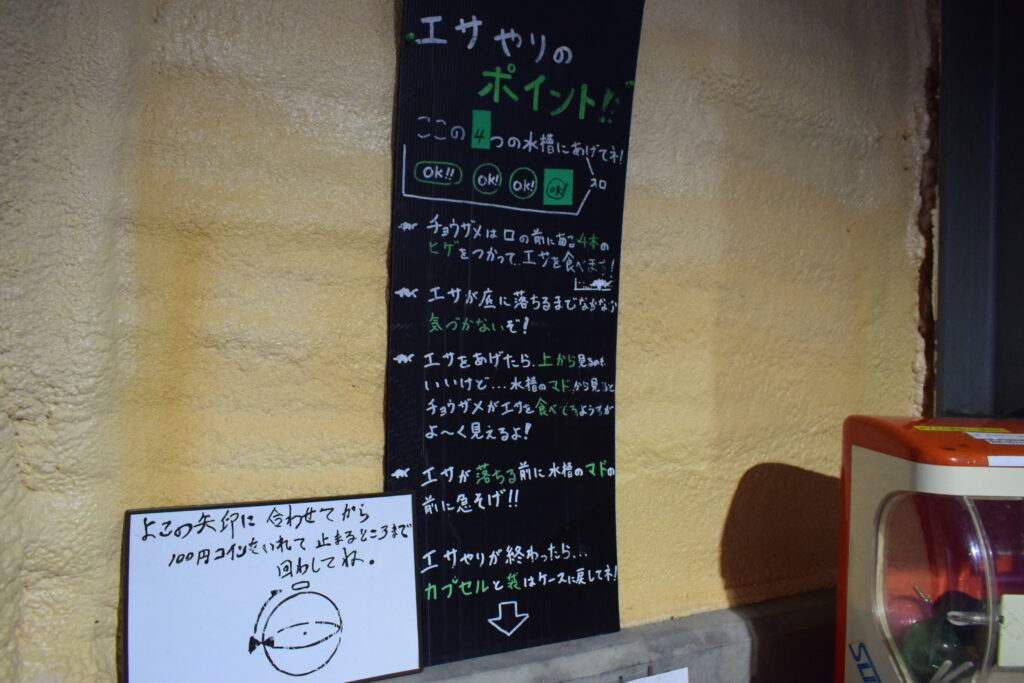 エサやりの
ポイント!!
ここの4つの水槽にあげてネ!
OK!! OK! OK! OK!
チョウザメは口の前にある4本の
ヒゲをつかって、エサを食べます!
エサが底に落ちるまでなかなか
気づかないぞ!
エサをあげたら、上から見るのも
いいけど…水槽のマドから見ると
チョウザメがエサを食べてるようすが
よ〜く見えるよ!
エサが落ちる前に水槽のマドの
前に急そげ!!
エサやりが終わったら…
カプセルと袋はケースに戻してネ!
よこの矢印に合わせてから
100円コインをいれて止まるところまで
回わしてね。